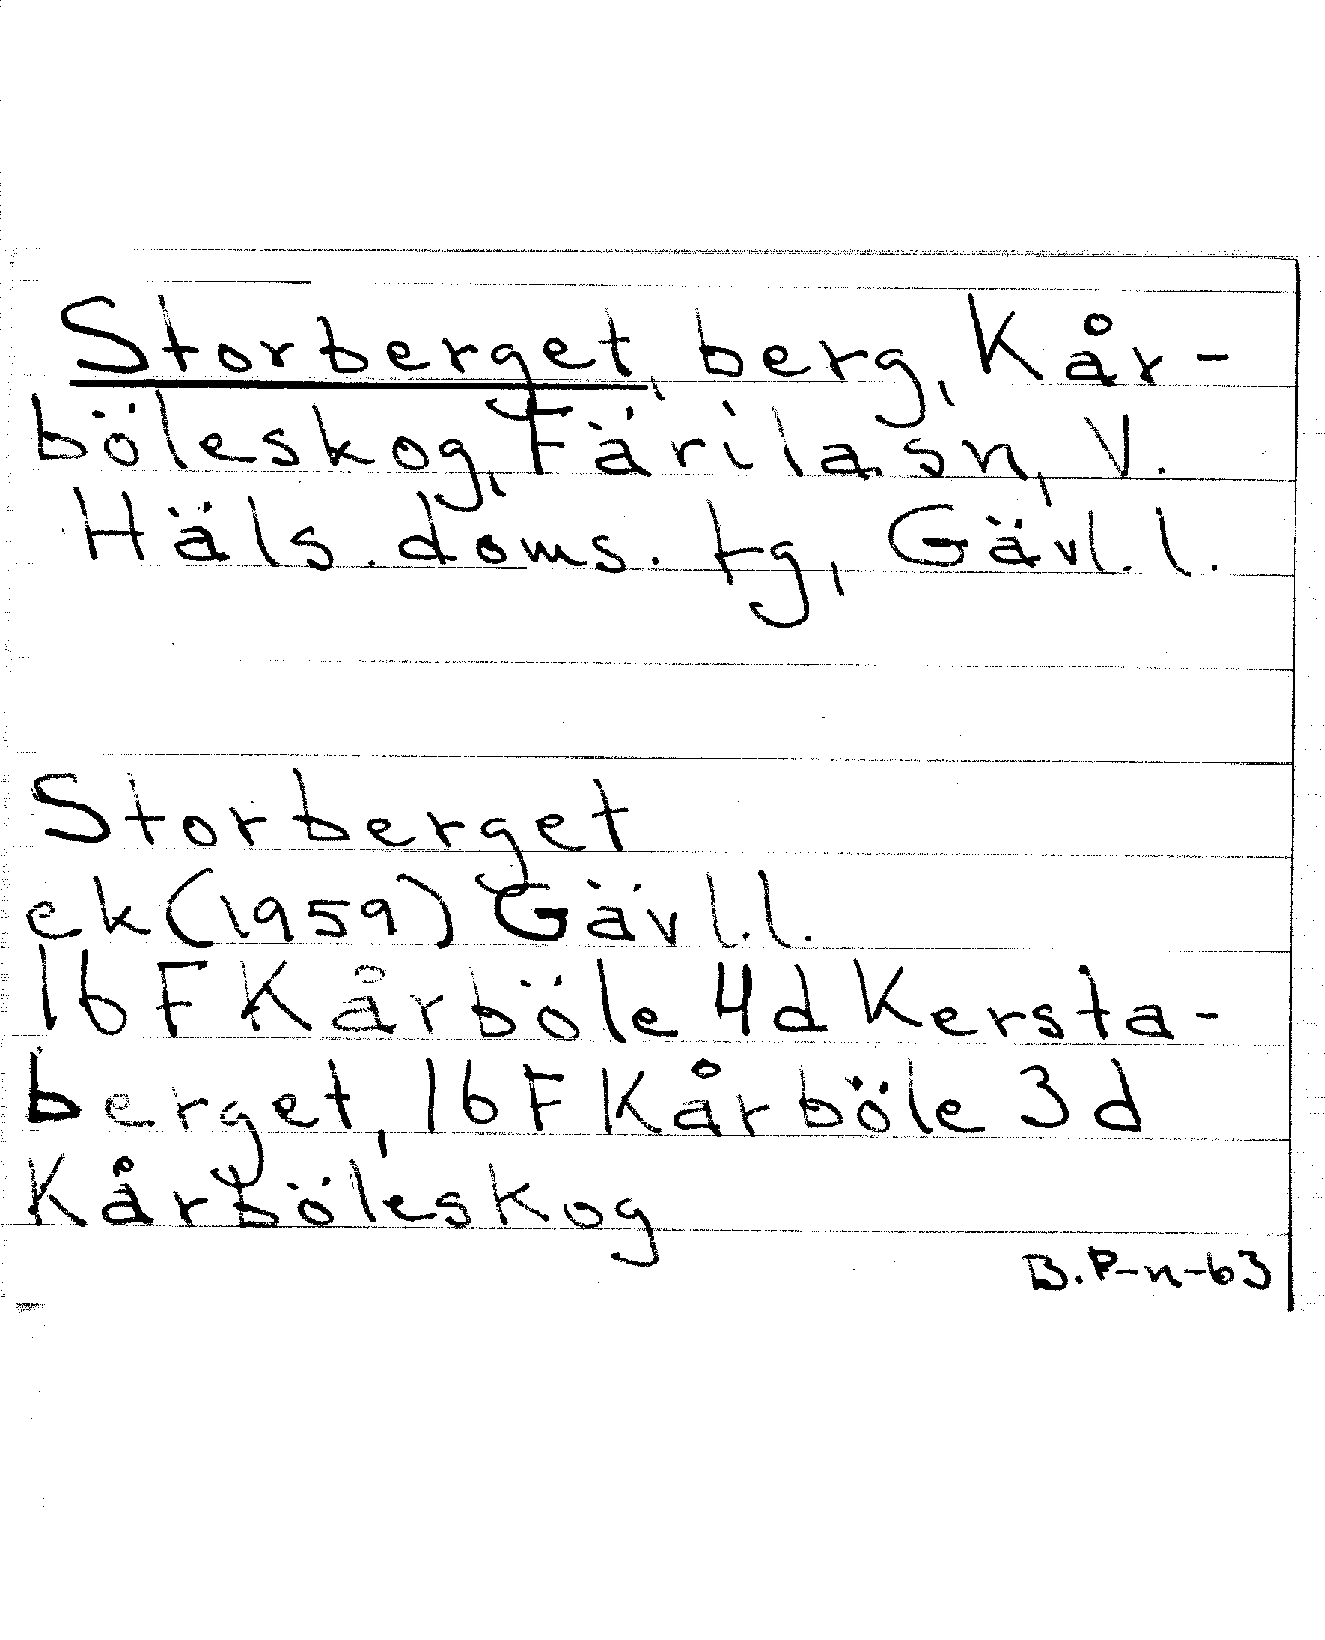 Storberget, berg, Kår-
böleskog, Färila sn, V.
Häls. doms. tg, Gävl. l.
Storberget
ek (1959) Gävl. l.
16 F Kårböle 4d Kersta-
berget, 16 F Kårböle 3d
Kårböleskog
B. P-n-63